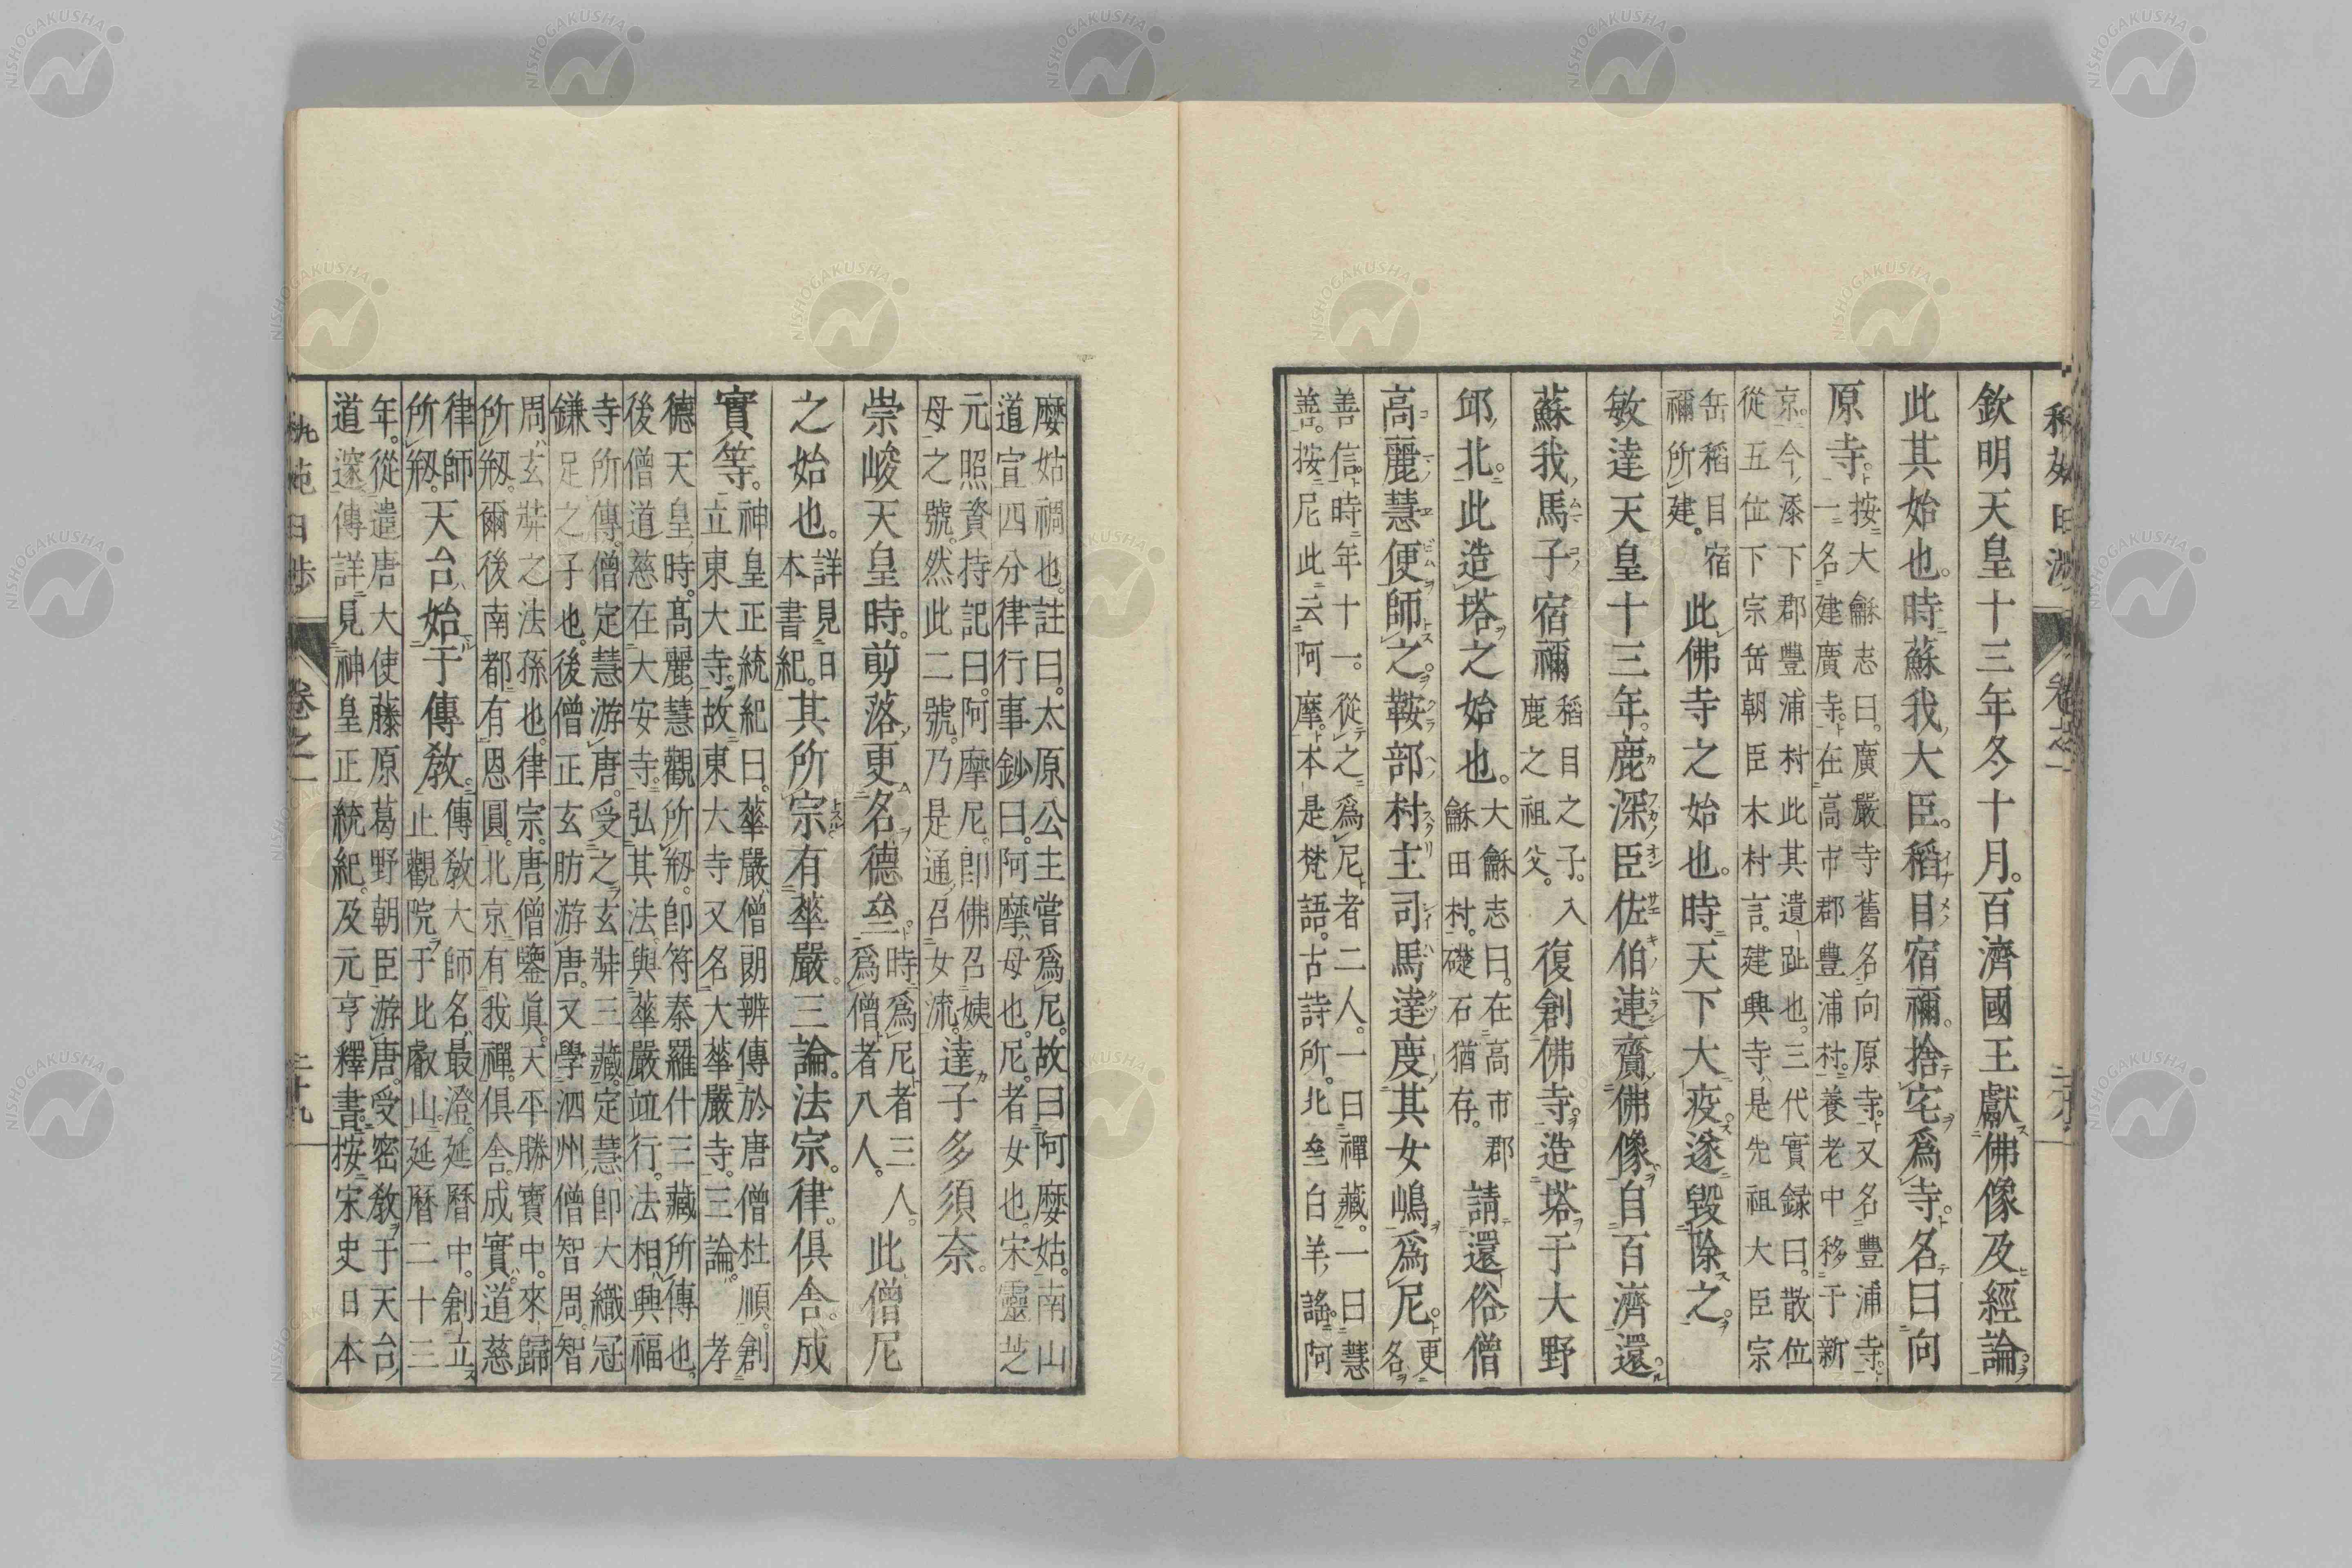 欽明天皇十三年冬十月。百濟國王獻佛像及經論。
此其始也。時蘇我大臣。稻目宿禰。捨宅爲寺。名曰向
原寺。按大龢志曰。廣嚴寺舊名向原寺。又名豐浦寺。
一名建廣寺。在高市郡豐浦村。養老中移于新
京。今添下郡豐浦村此其遺趾也。三代實録曰。散位
從五位下宗岳朝臣木村言。建興寺是先祖大臣宗
岳稻目宿
禰所建。
此佛寺之始也。時天下大疫。遂毀除之。
敏達天皇十三年。鹿深臣佐伯連齎佛像。自百濟還。
蘇我馬子宿禰
稻目之子。入
鹿之祖父。
復創佛寺。造塔于大野
邱北。此造塔之始也。
大龢志曰。在高市郡
龢田村。礎石猶存。
請還俗僧
高麗慧便師之。鞍部村主司馬達度其女嶋爲尼。更
名
善信。時年十一。從之爲尼者二人。一曰禪藏。一曰慧
善。按尼此云阿摩。本是梵語。古詩所。北壘白羊謠。阿
麼姑禂也。註曰。太原公主嘗爲尼。故曰阿麼姑。南山
道宣四分律行事鈔曰。阿摩母也。尼者女也。宋靈芝
元照資持記曰。阿摩尼。卽佛召姨
母之號。然此二號。乃是通召女流。
達子多須奈。
崇峻天皇時。剪落更名德壘。
時爲尼者三人。
爲僧者八人。
此僧尼
之始也。
詳見日
本書紀。
其所宗有華嚴。三論。法宗。律。俱舍。成
實等。
神皇正統紀曰。華嚴僧朗辨傳於唐僧杜順。創
立東大寺。故東大寺又名大華嚴寺。三論。孝
德天皇時。高麗慧觀所刱。卽符秦羅什三藏所傳也。
後僧道慈在大安寺。弘其法。與華嚴竝行。法相興福
寺所傳。僧定慧游唐。受之玄奘三藏。定慧卽大織冠
鎌足之子也。後僧正玄肪游唐。又學泗州僧智周。智
周玄奘之法孫也。律宗。唐僧鑒眞。天平勝寶中。來歸
所刱。爾後南都有恩圓。北京有我禪。俱舍。成實。道慈
律師
所刱。
天台始于傳敎。
傳敎大師名最澄。延曆中。創立
止觀院于比叡山。延曆二十三
年。從遣唐大使藤原葛野朝臣游唐。受密敎于天台
道邃。傳詳見神皇正統紀。及元亨釋書。按宋史日本
卷之一
二十九